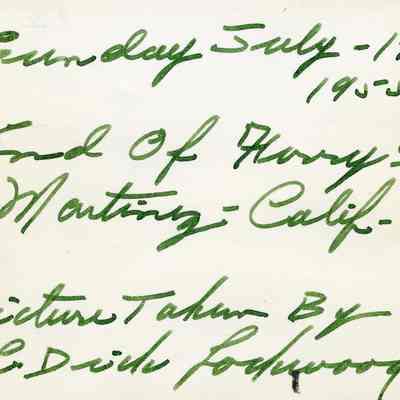 Sunday July - 1
1955
End Of Ferry
Martinez - Calif -
icture Taken By
Dick Lockwood